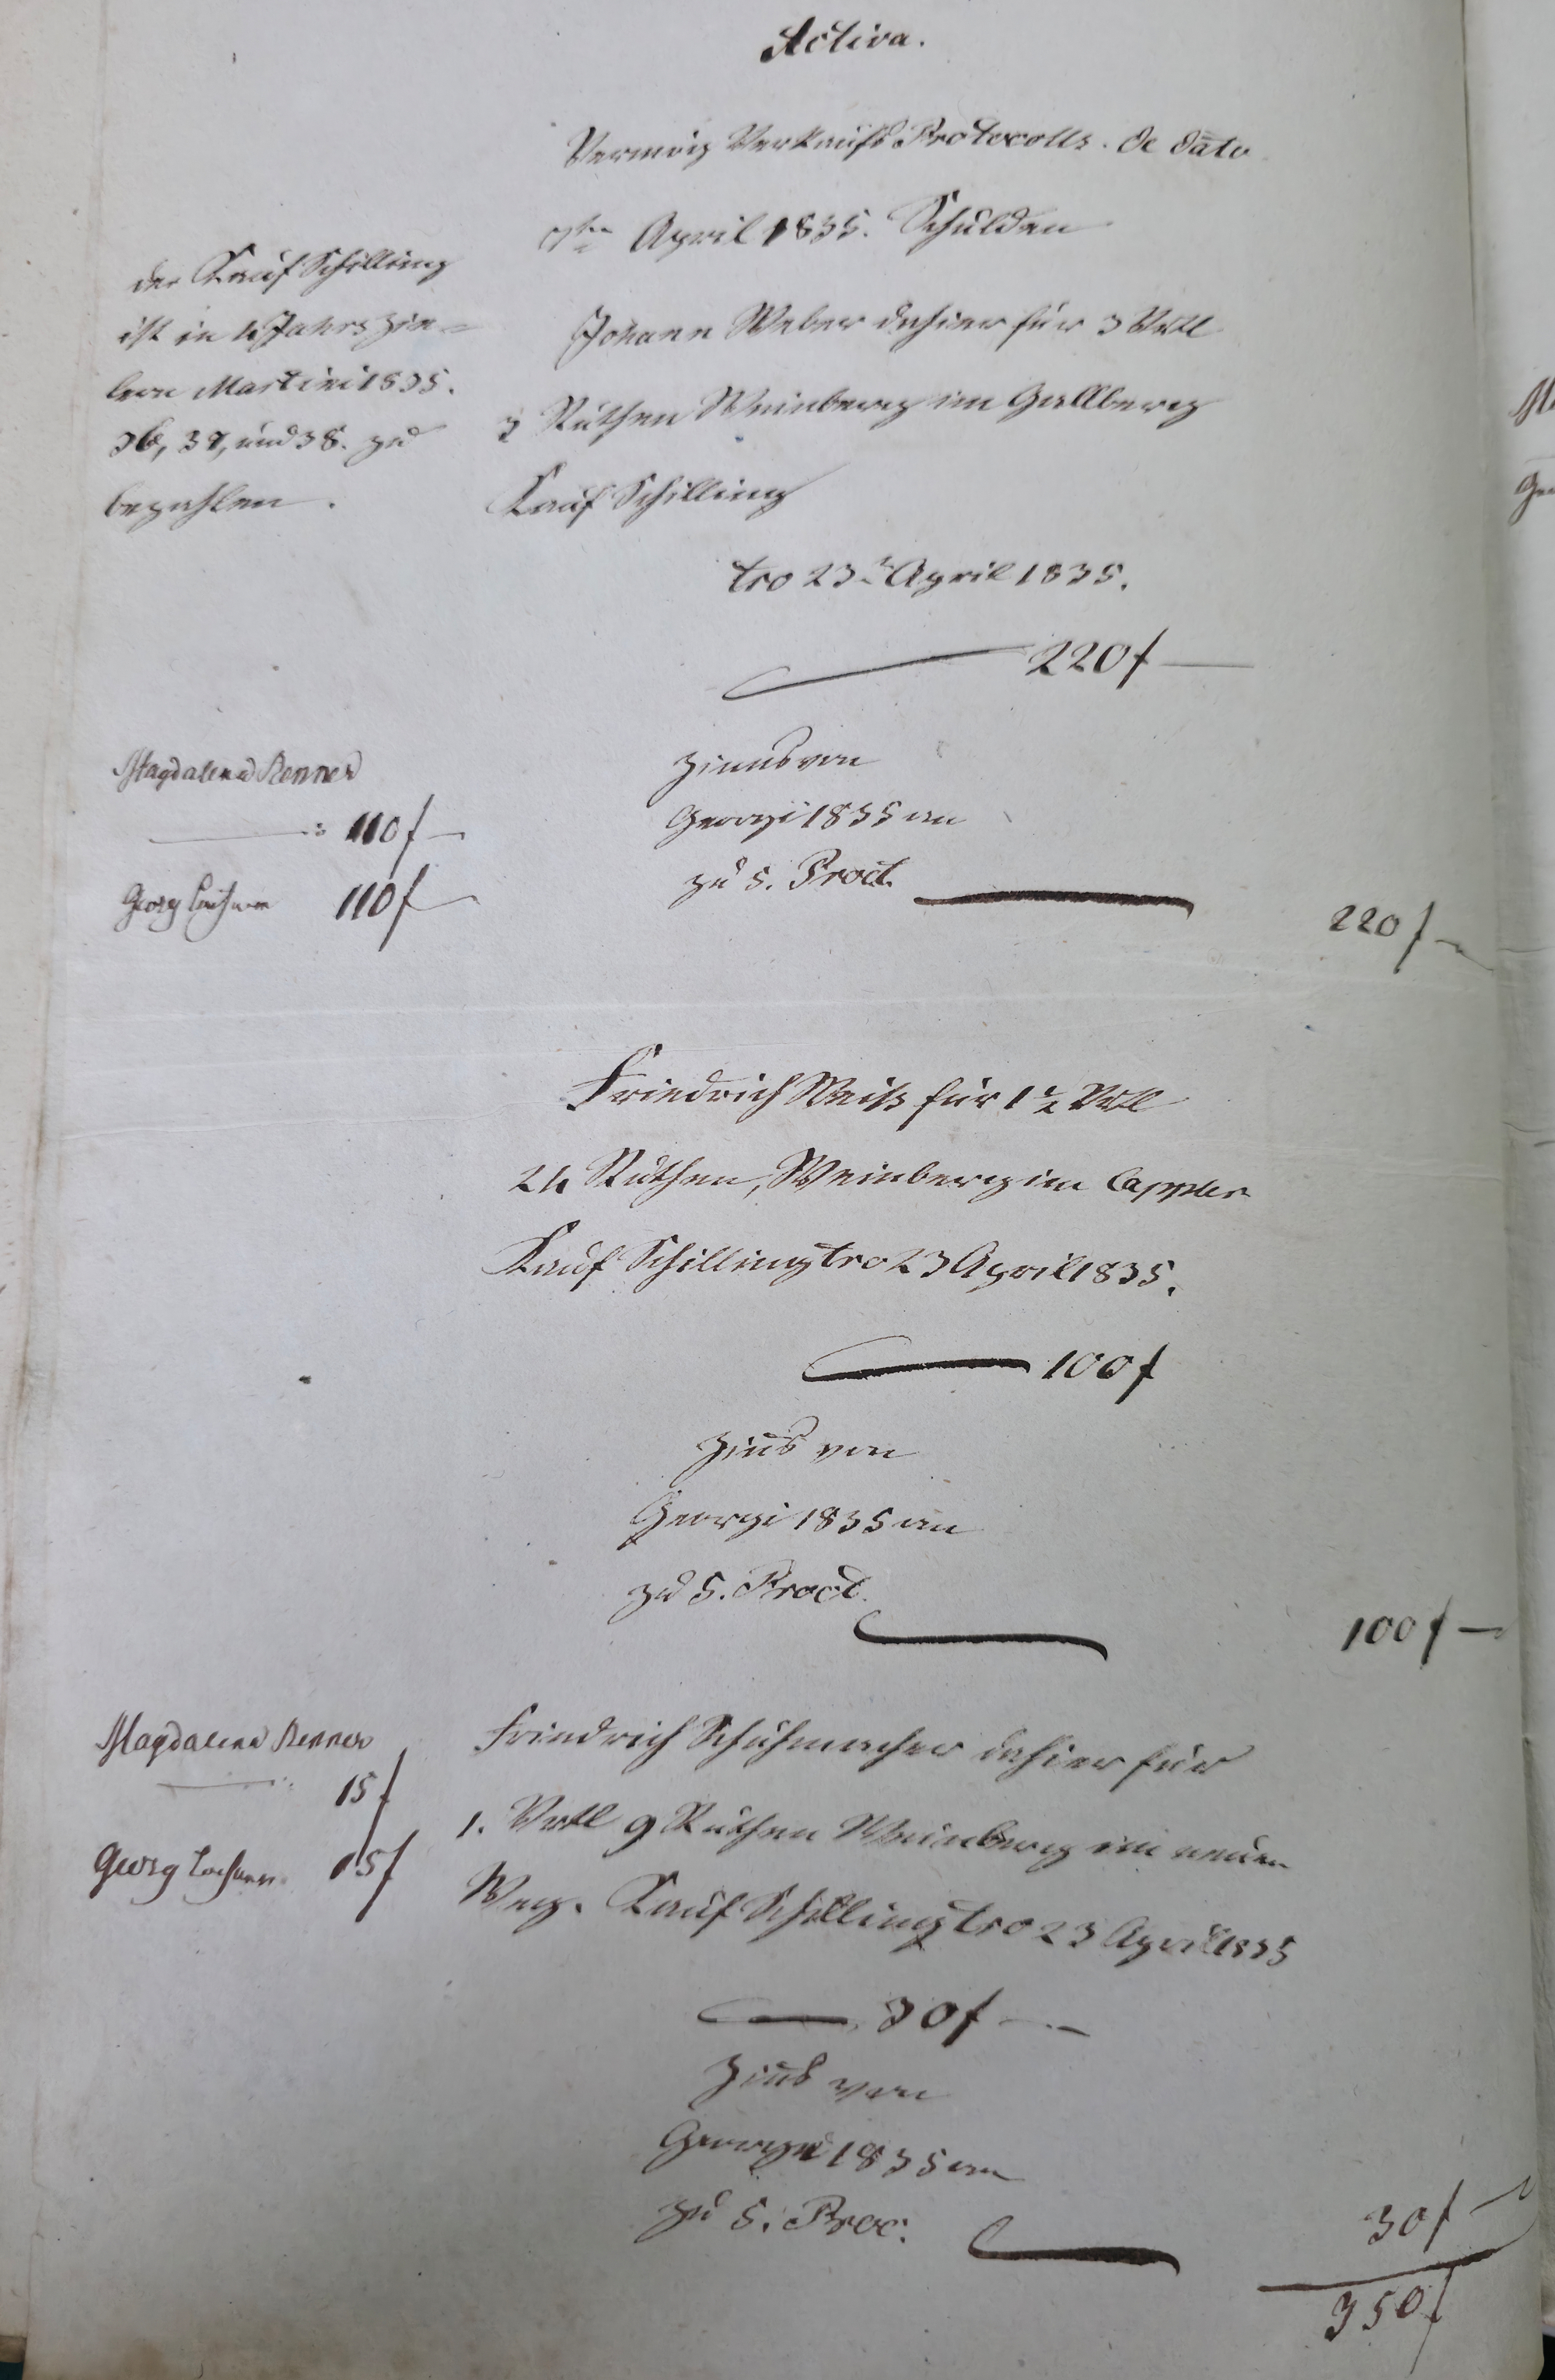 Activa.
Vermög Verkaufs Protocolls. de dato
April 1835. Schulden
der Kauf Schilling
ist in 4 Jahrs Zie=
lern Martini 1835.
36, 37, und 38. zu
bezahlen.
Johann Weber dahier für 3 Vrtl
3 Ruthen Weinberg im Gallberg
Kauf Schilling
tro 23t April 1835.
220 f
Magdalena Renner
110 f
Georg 110 f
Zinns von
Georgi 1835 an
zu 5. Proct.
220 f
Friedrich Weiß für 1 1/2 Vrtl
24 Ruthen, Weinberg im Cappler
Kauf Schilling tro 23 April 1835.
100 f
Zins von
Georgi 1835 an
zu 5. Proct.
100 f
Magdalena Renner
15 f
Georg 15 f
Friedrich Schuhmacher dahier für
1. Vrtl 9 Ruthen Weinberg im neuen
Weg. Kauf Schilling tro 23 April 1835
30 f
Zins von
Georgi 1835 an
zu 5. Proc.
30 f
350 f